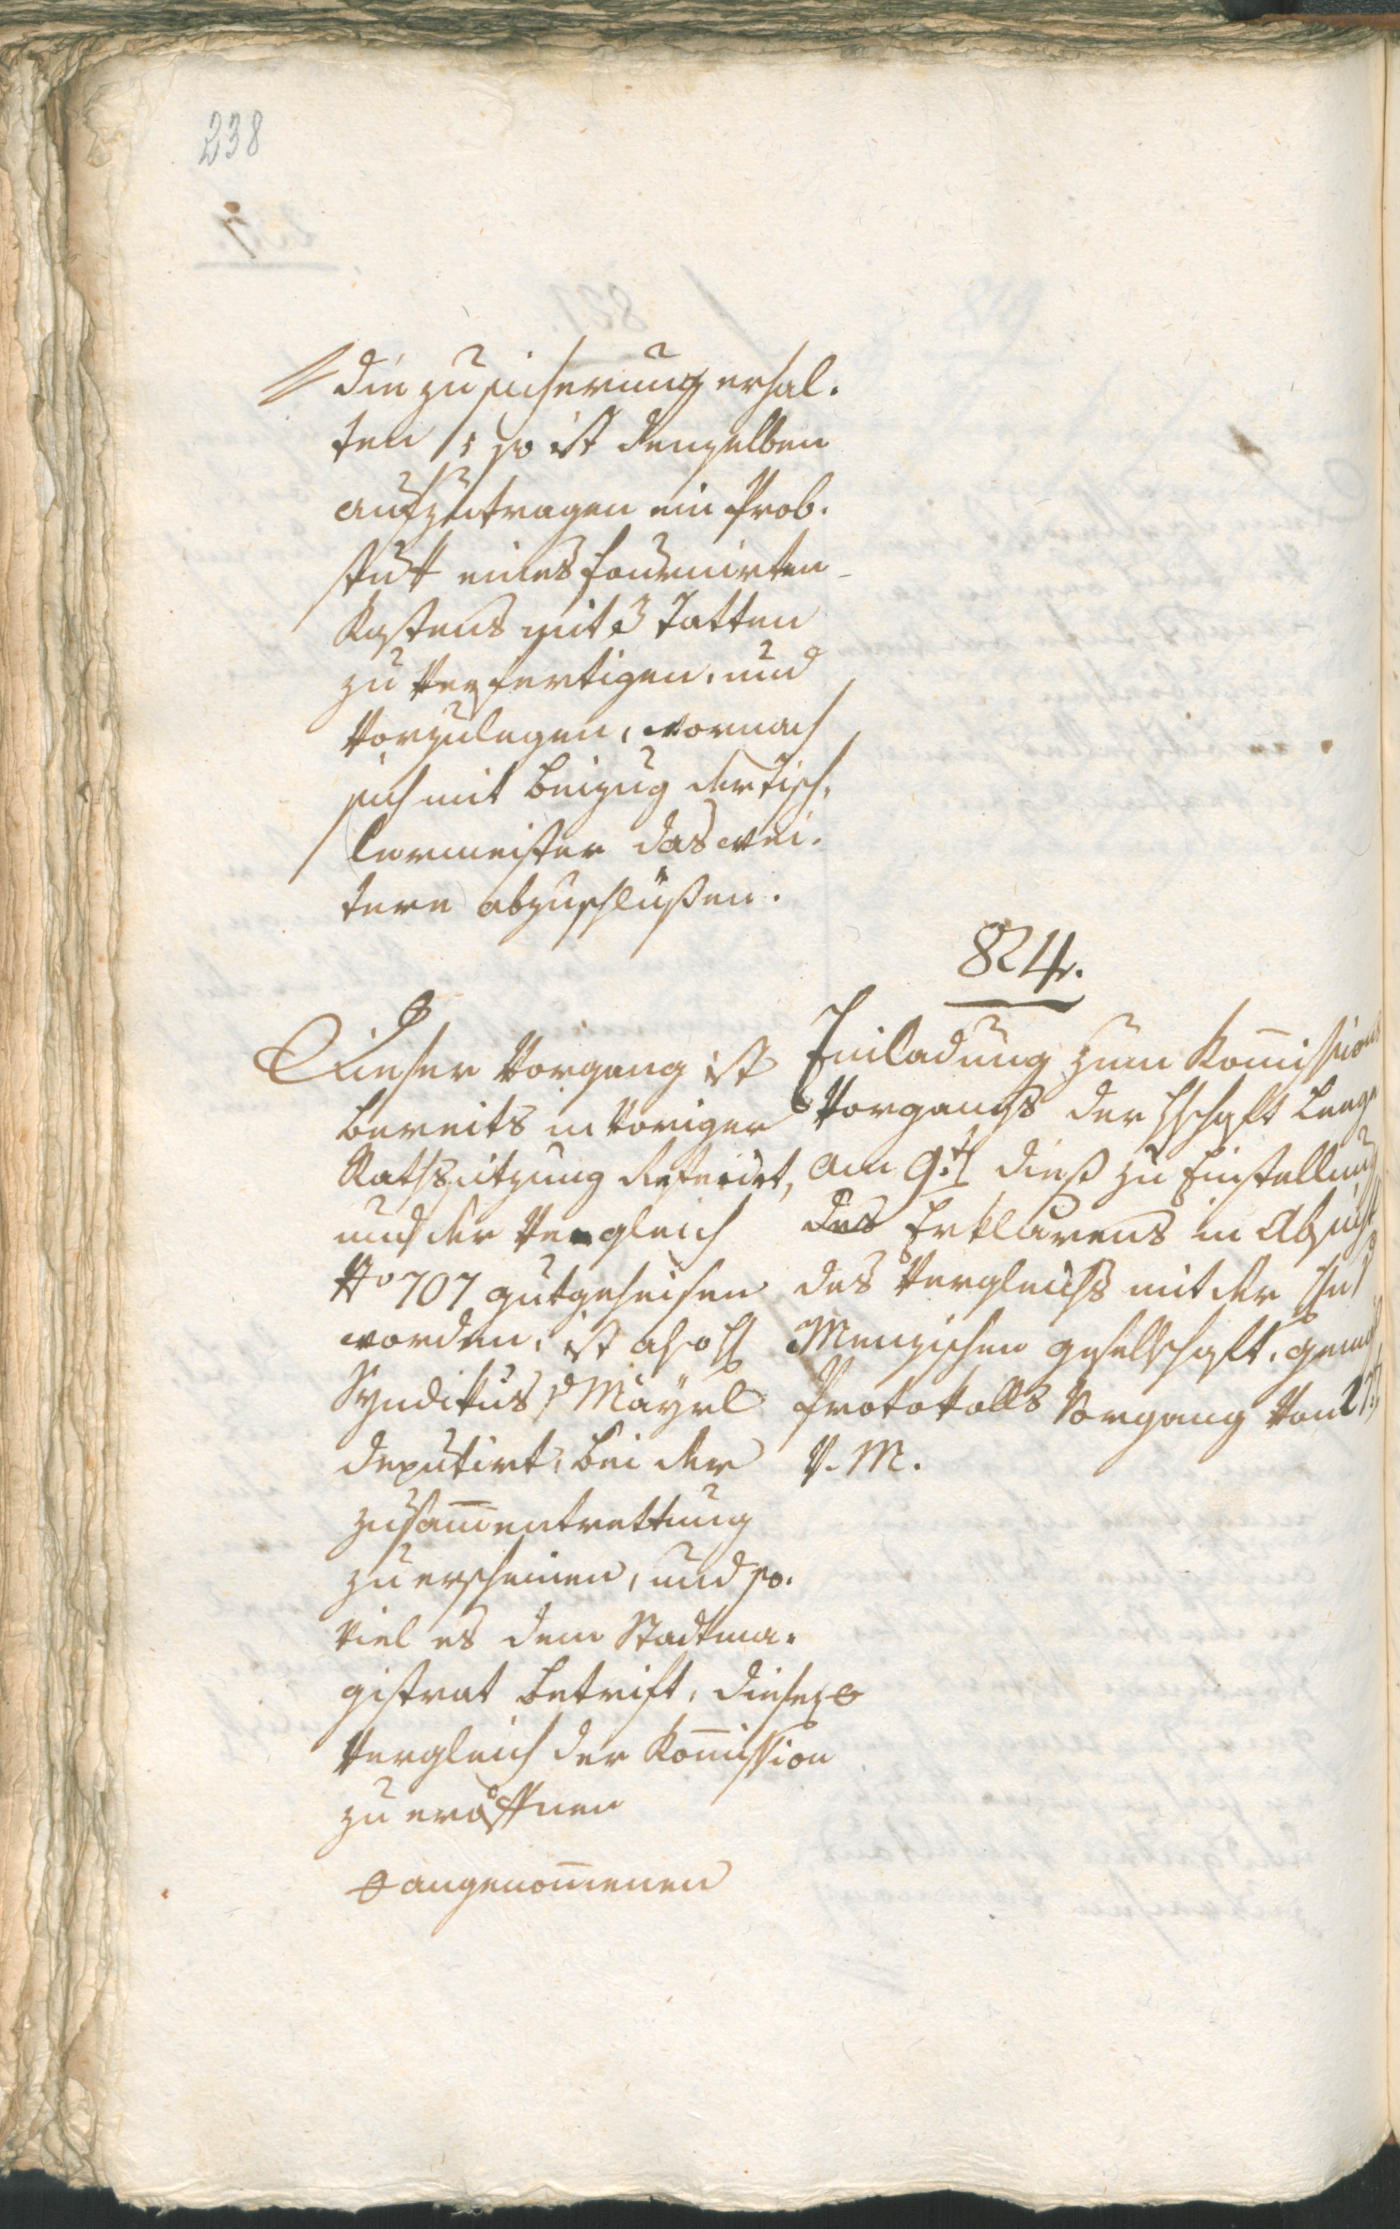 238
die zusicherung erhal.
ten so ist denselben
aufzutragen ein Prob.
stuk eines fournirten
Kastens mit 3 Tatten
zu Verfertigen, und
Vorzulegen, wornach
sich mit beizug der Tisch,
lermeister das wei.
tere abzuschlüßen.
824.
Dieser Vorgang ist
bereits in Voriger
Rathssitzung referirt,
und der Vergleich
No 707 gutgeheisen
worden, ist also H
Syndikus v Mayrl
deputirt, bei der
zusam̅entrettung
zu erscheinen, und so.
viel es dem Stadtma.
gistrat betrift, diesen
Vergleich der Kom̅ission
zu eröffnen
angenom̅enen
Einladung zum Kom̅issions
Vorgangs der Hschaft
am 9t dieß zu Einstellung
des Erklärens in Absicht
des Vergleichs mit der
Menzischen gesellschaft, gemäß
Protokolls Vorgang Von 27
V. M.